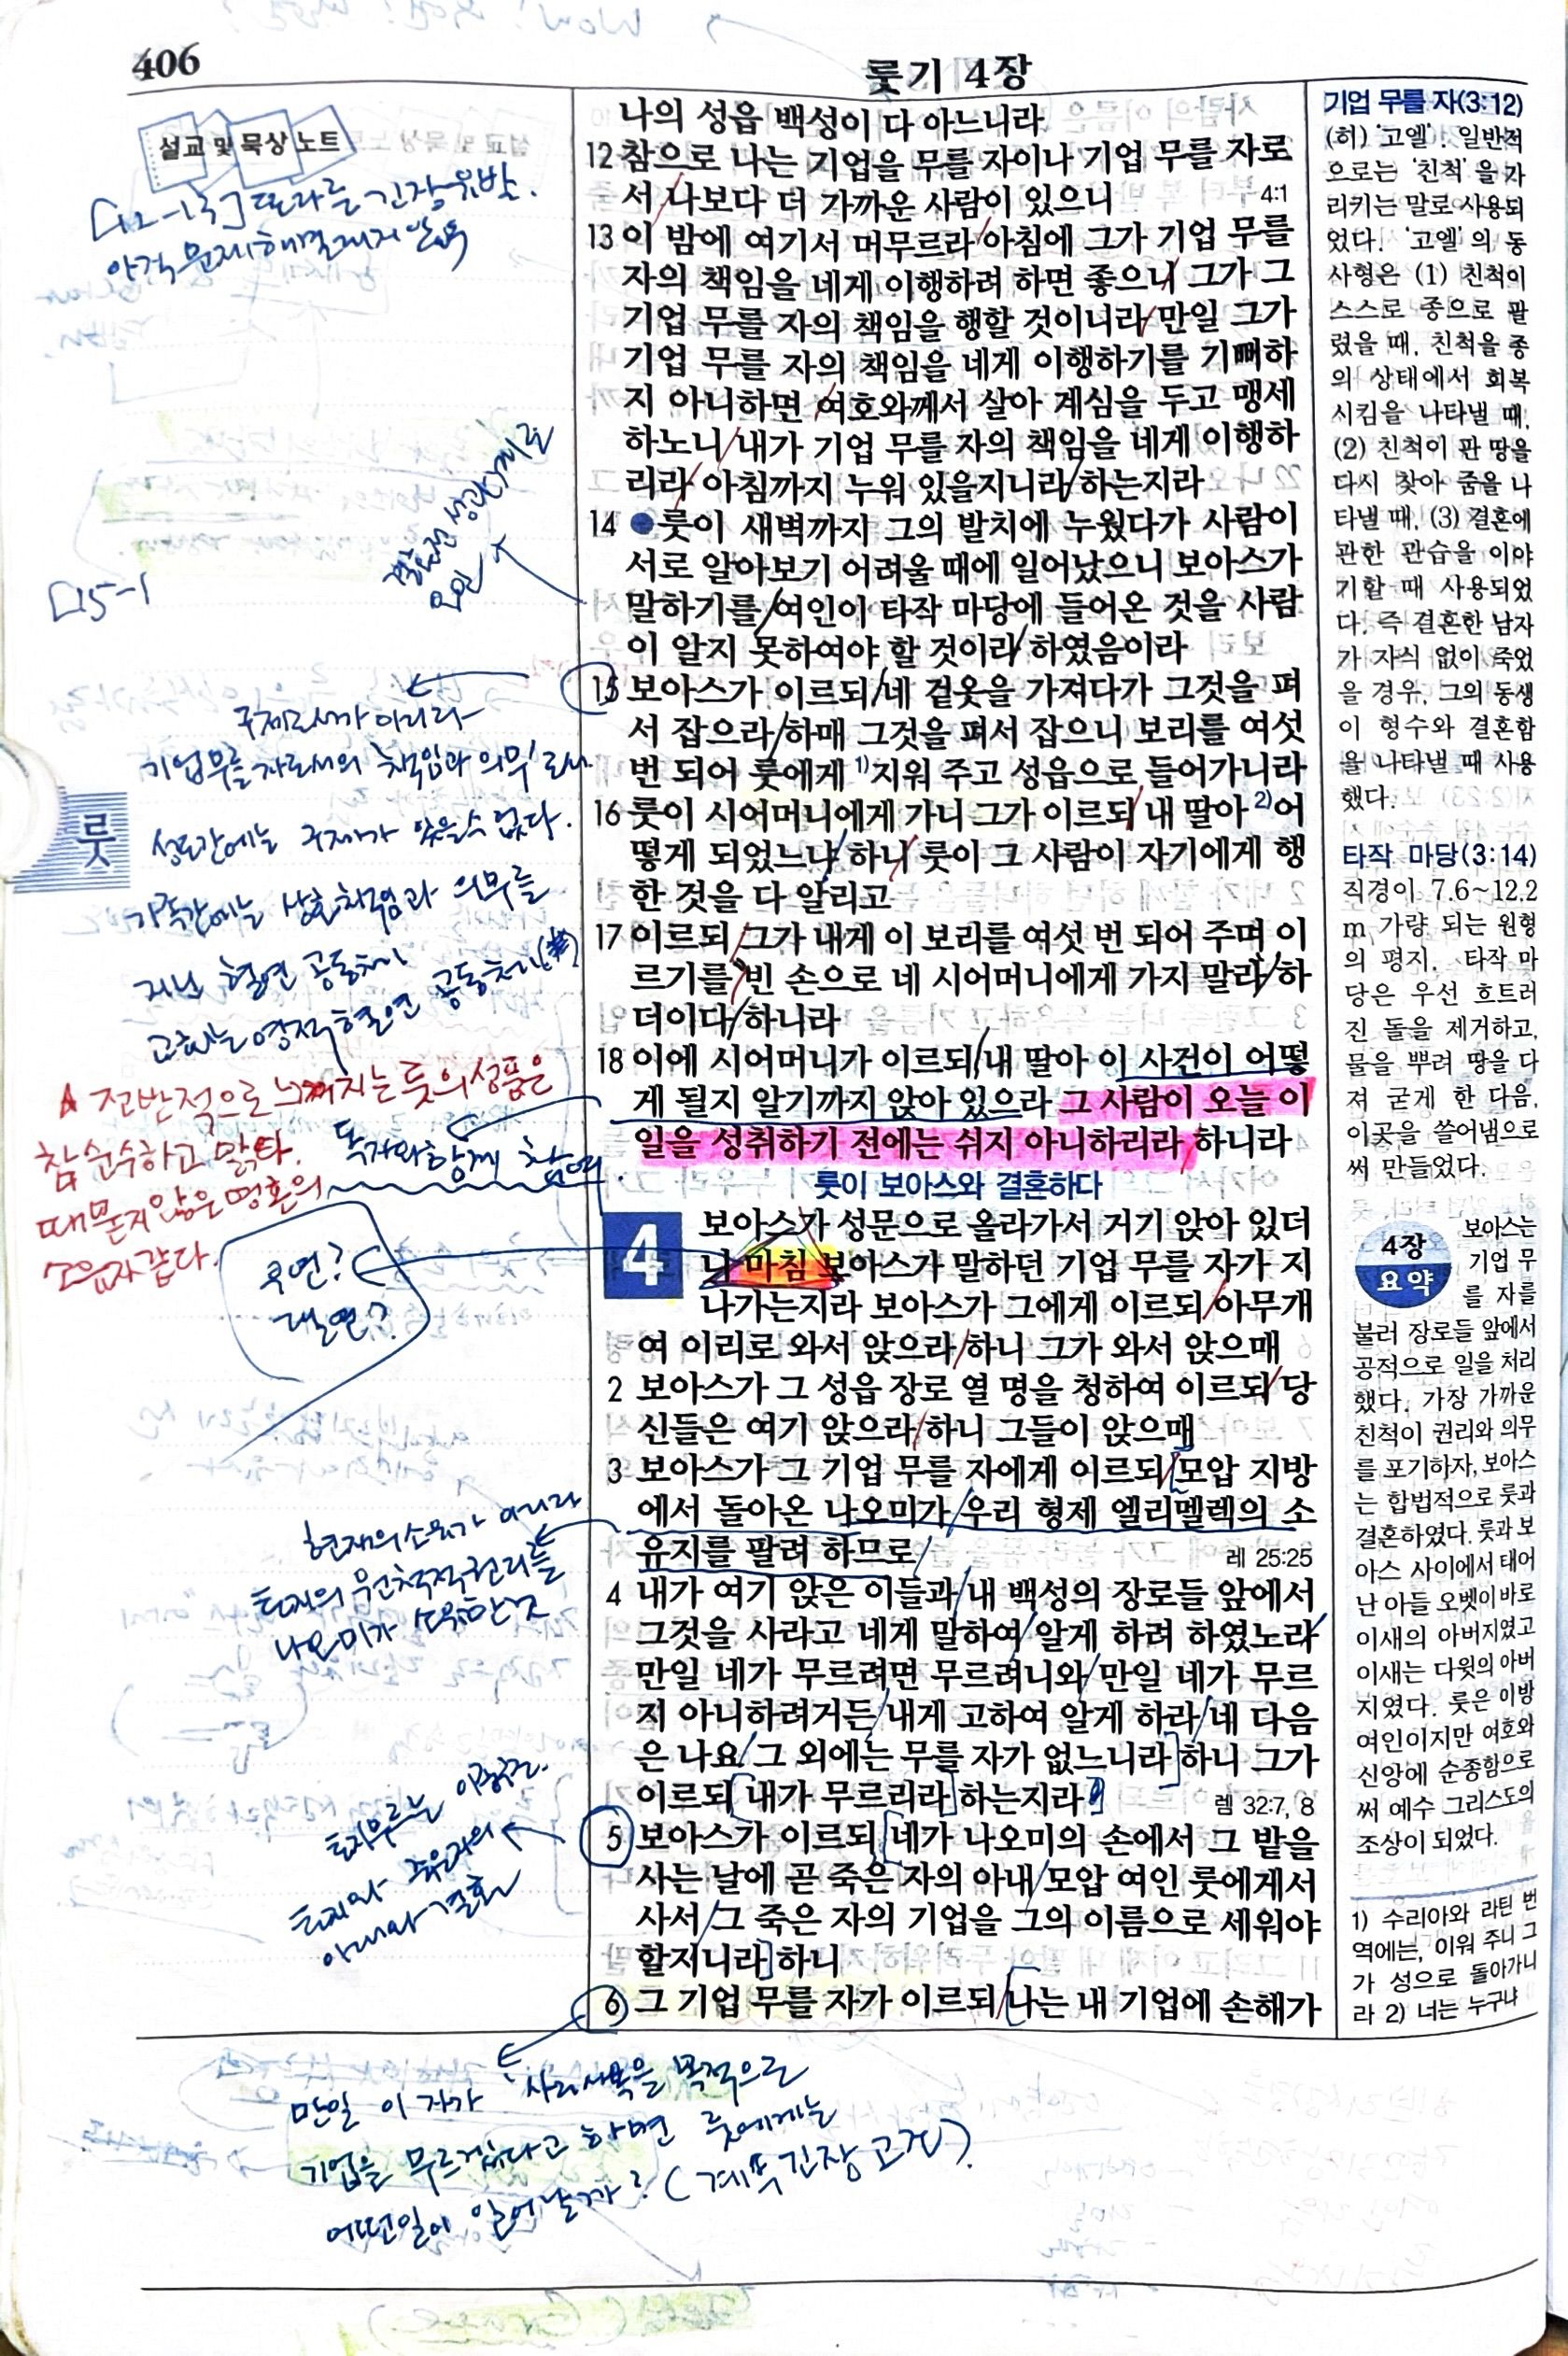 406
룻기 4장
설교 및 묵상 노트
[12-13] 또다른 긴장유발.
아직 문제해결되지 않음
[15-1
구제로서가 아니라
기업무를 자로서의 책임과 의무로
성도간에는 구제가 있을 수 없다.
가족간에는 상호책임과 의무를
지닌 혈연 공동체
교회는 영적 혈연 공동체
전반적으로 느껴지는 룻의 성품은
참 순수하고 맑다.
때묻지 않은 영혼의
모습 같다.
독자와 함께
우연?
필연?
현재의 소유가 아니라
토지의 원천적 권리를
나오미가 소유한
토지무르는
토지와 죽은자의
아내와 결혼
만일 이 자가 사리사욕을 목적으로
기업을 무르겠다고 하면 룻에게는
어떤일이 일어날까? (계속 긴장 고조)?
룻
나의 성읍 백성이 다 아느니라
12 참으로 나는 기업을 무를 자이나 기업 무를 자로
서 나보다 더 가까운 사람이 있으니 4:1
13 이 밤에 여기서 머무르라 아침에 그가 기업 무를
자의 책임을 네게 이행하려 하면 좋으니 그가 그
기업 무를 자의 책임을 행할 것이니라 만일 그가
기업 무를 자의 책임을 네게 이행하기를 기뻐하
지 아니하면 여호와께서 살아 계심을 두고 맹세
하노니 내가 기업 무를 자의 책임을 네게 이행하
리라 아침까지 누워 있을지니라 하는지라
14 ●룻이 새벽까지 그의 발치에 누웠다가 사람이
서로 알아보기 어려울 때에 일어났으니 보아스가
말하기를 여인이 타작 마당에 들어온 것을 사람
이 알지 못하여야 할 것이라 하였음이라
15 보아스가 이르되 네 겉옷을 가져다가 그것을 펴
서 잡으라 하매 그것을 펴서 잡으니 보리를 여섯
번 되어 룻에게 1)지워 주고 성읍으로 들어가니라
16 룻이 시어머니에게 가니 그가 이르되 내 딸아 2)어
떻게 되었느냐 하니 룻이 그 사람이 자기에게 행
한 것을 다 알리고
17 이르되 그가 내게 이 보리를 여섯 번 되어 주며 이
르기를 빈 손으로 네 시어머니에게 가지 말라 하
더이다 하니라
18 이에 시어머니가 이르되 내 딸아 이 사건이 어떻
게 될지 알기까지 앉아 있으라 그 사람이 오늘 이
일을 성취하기 전에는 쉬지 아니하리라 하니라
룻이 보아스와 결혼하다
4 보아스가 성문으로 올라가서 거기 앉아 있더
니 마침 보아스가 말하던 기업 무를 자가 지
나가는지라 보아스가 그에게 이르되 아무개
여 이리로 와서 앉으라 하니 그가 와서 앉으매
2 보아스가 그 성읍 장로 열 명을 청하여 이르되 당
신들은 여기 앉으라 하니 그들이 앉으매
3 보아스가 그 기업 무를 자에게 이르되 [모압 지방
에서 돌아온 나오미가 우리 형제 엘리멜렉의 소
유지를 팔려 하므로 레 25:25
4 내가 여기 앉은 이들과 내 백성의 장로들 앞에서
그것을 사라고 네게 말하여 알게 하려 하였노라
만일 네가 무르려면 무르려니와 만일 네가 무르
지 아니하려거든 내게 고하여 알게 하라 네 다음
은 나요 그 외에는 무를 자가 없느니라] 하니 그가
이르되 [내가 무르리라] 하는지라 렘 32:7, 8
5 보아스가 이르되 [네가 나오미의 손에서 그 밭을
사는 날에 곧 죽은 자의 아내 모압 여인 룻에게서
사서 그 죽은 자의 기업을 그의 이름으로 세워야
할지니라] 하니
6 그 기업 무를 자가 이르되 [나는 내 기업에 손해가
기업 무를 자(3:12)
(히) '고엘'. 일반적
으로는 '친척'을 가
리키는 말로 사용되
었다. '고엘'의 동
사형은 (1) 친척이
스스로 종으로 팔
렸을 때, 친척을 종
의 상태에서 회복
시킴을 나타낼 때,
(2) 친척이 판 땅을
다시 찾아 줌을 나
타낼 때, (3) 결혼에
관한 관습을 이야
기할 때 사용되었
다. 즉 결혼한 남자
가 자식 없이 죽었
을 경우, 그의 동생
이 형수와 결혼함
을 나타낼 때 사용
했다.
타작 마당(3:14)
직경이 7.6~12.2
m 가량 되는 원형
의 평지. 타작 마
당은 우선 흐트러
진 돌을 제거하고,
물을 뿌려 땅을 다
져 굳게 한 다음,
이곳을 쓸어냄으로
써 만들었다.
4장
요약
보아스는
기업 무
를 자를
불러 장로들 앞에서
공적으로 일을 처리
했다. 가장 가까운
친척이 권리와 의무
를 포기하자, 보아스
는 합법적으로 룻과
결혼하였다. 룻과 보
아스 사이에서 태어
난 아들 오벳이 바로
이새의 아버지였고
이새는 다윗의 아버
지였다. 룻은 이방
여인이지만 여호와
신앙에 순종함으로
써 예수 그리스도의
조상이 되었다.
1) 수리아와 라틴 번
역에는, 이워 주니 그
가 성으로 돌아가니
라 2) 너는 누구냐